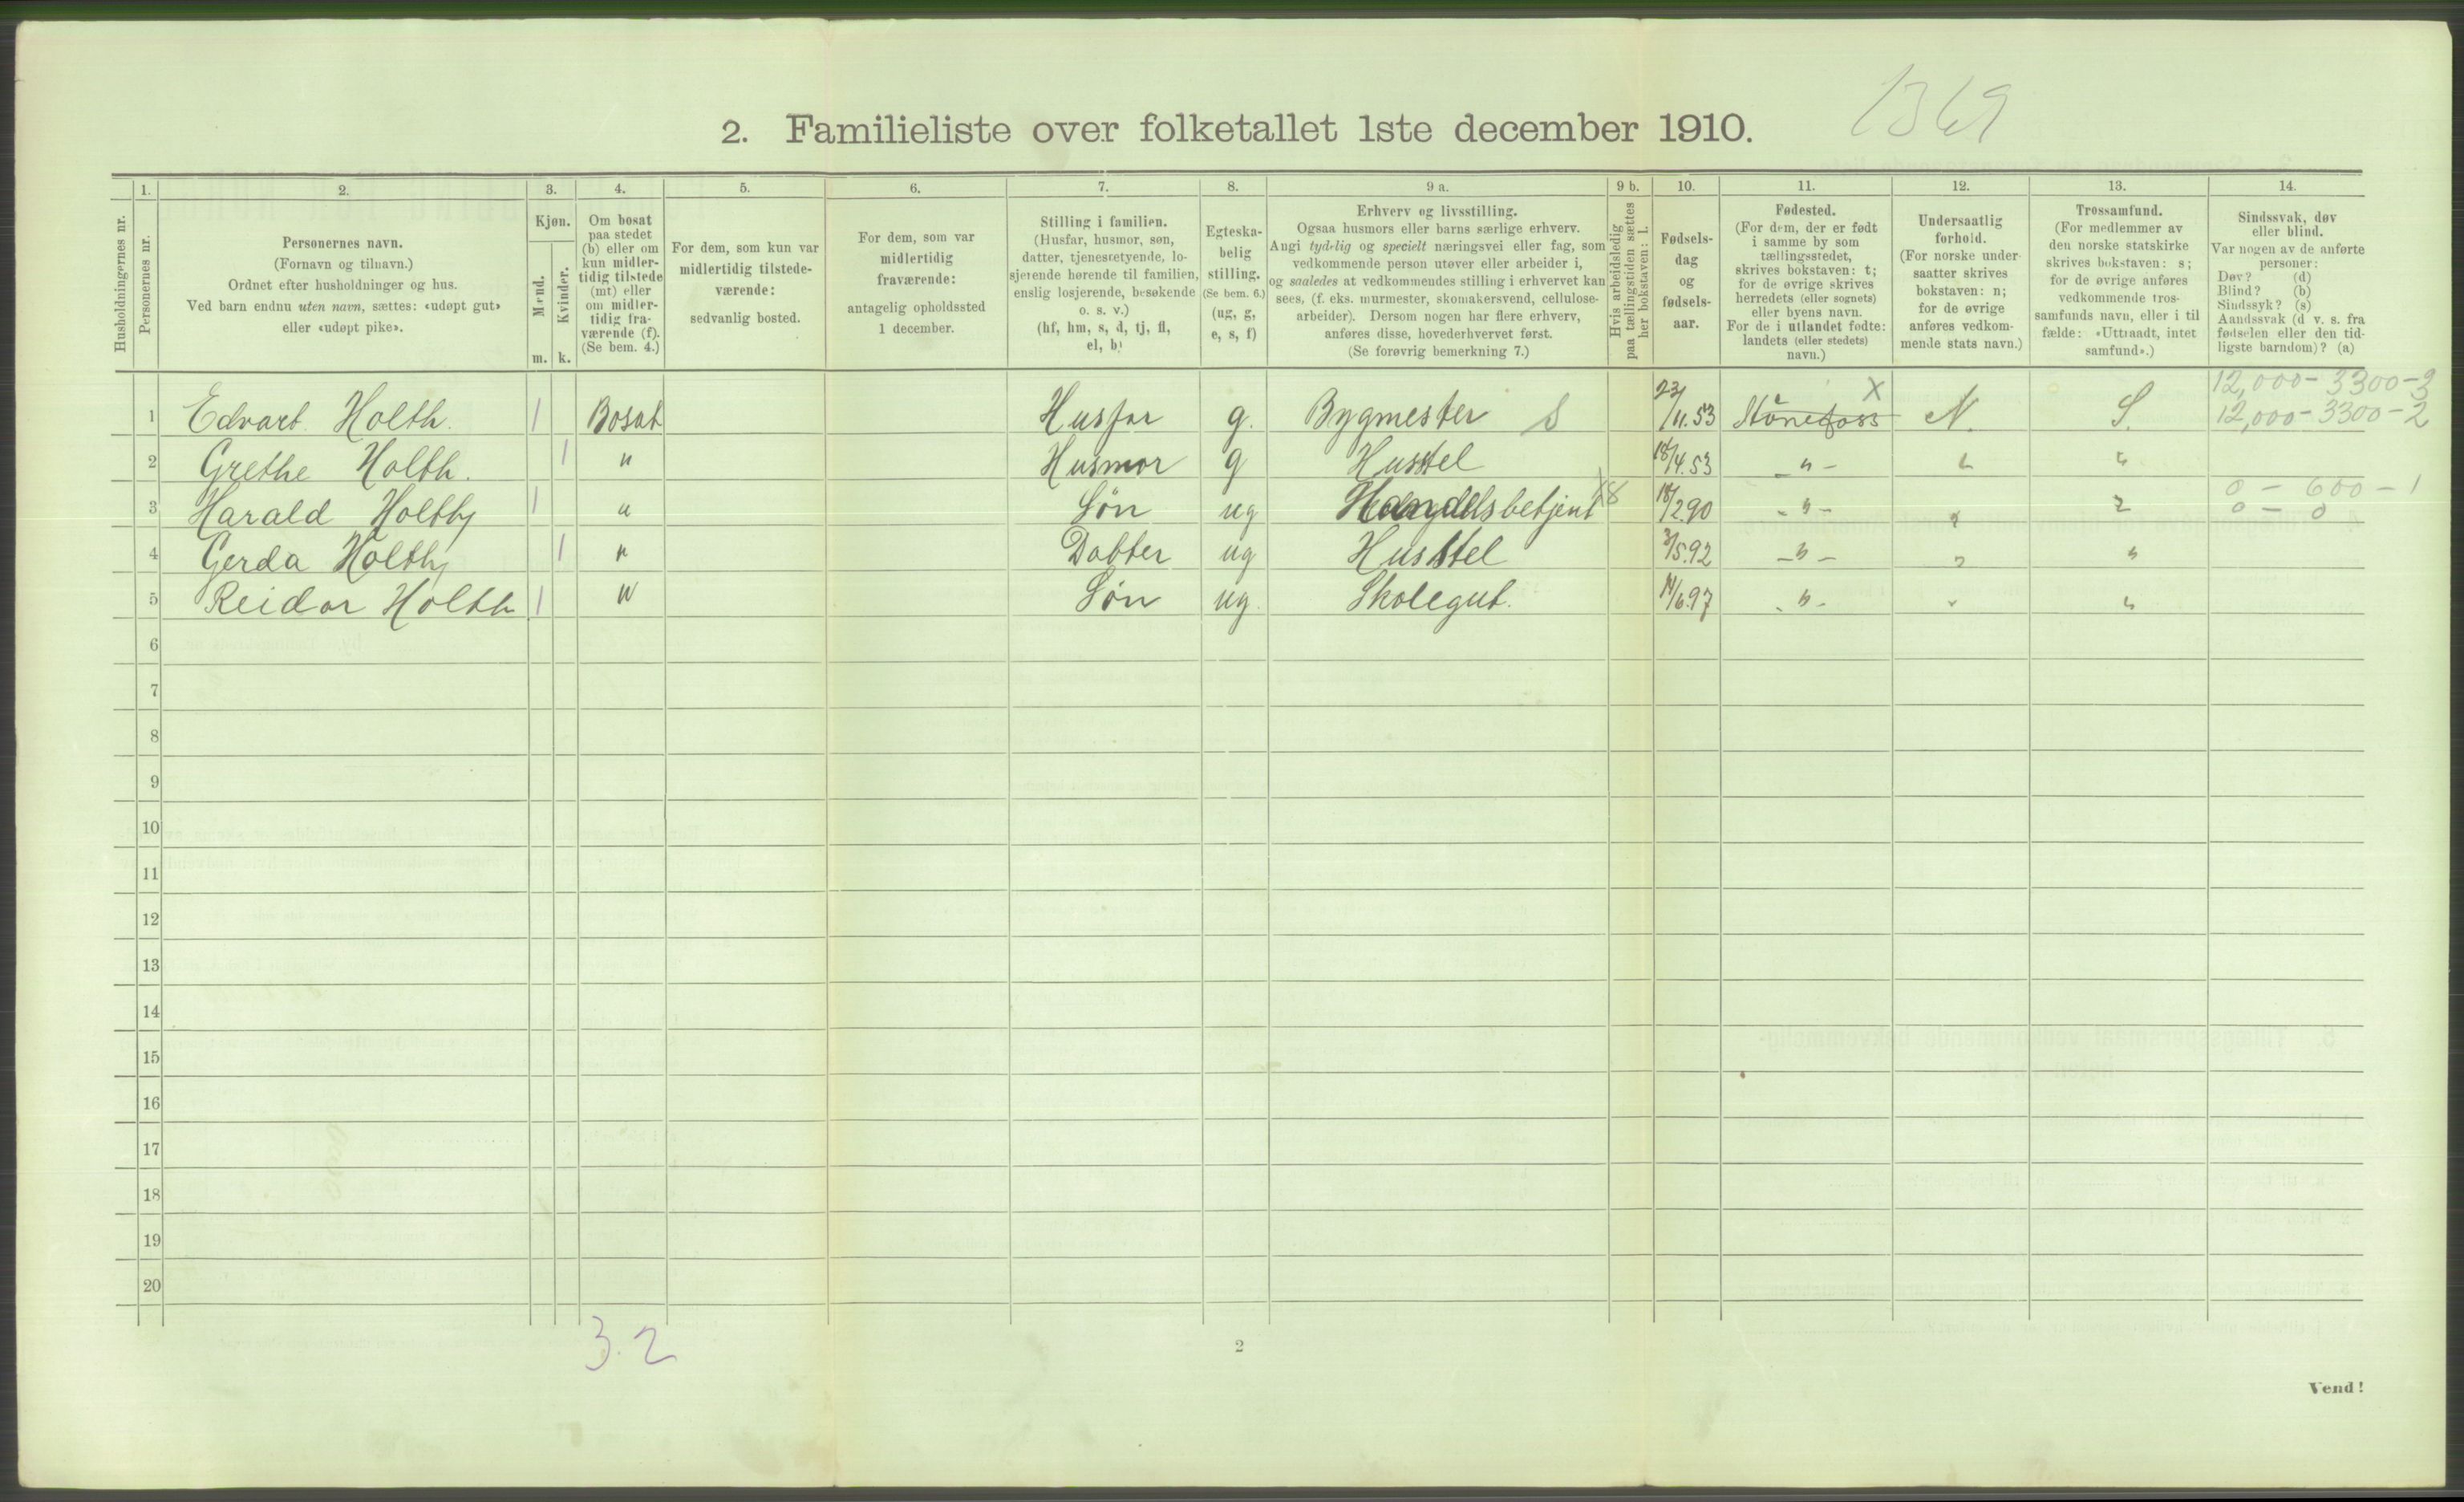 1369
2. Familieliste over folketallet 1ste december 1910.
1. 2. 3. 4. 5. 6. 7. 8. 9 a. 9 b. 10. 11. 12. 13. 14.
Husholdningernes nr.
Personernes nr.
Personernes navn.
(Fornavn og tilnavn.)
Ordnet efter husholdninger og hus.
Ved barn endnu uten navn, sættes: «udøpt gut»
eller «udøpt pike».
Kjøn.
Mænd.
Kvinder.
m. k.
Om bosat
paa stedet
(b) eller om
kun midler-
tidig tilstede
(mt) eller
om midler-
tidig fra-
værende (f).
(Se bem. 4.)
For dem, som kun var
midlertidig tilstede-
værende:
sedvanlig bosted.
For dem, som var
midlertidig
fraværende:
antagelig opholdssted
1 december.
Stilling i familien.
(Husfar, husmor, søn,
datter, tjenestetyende, lo-
sjerende hørende til familien,
enslig losjerende, besøkende
o. s. v.)
(hf, hm, s, d, tj, fl,
el, b)
Egteska-
belig
stilling.
(Se bem. 6.)
(ug, g,
e, s, f)
Erhverv og livsstilling.
Ogsaa husmors eller barns særlige erhverv.
Angi tydelig og specielt næringsvei eller fag, som
vedkommende person utøver eller arbeider i,
og saaledes at vedkommendes stilling i erhvervet kan
sees, (f. eks. murmester, skomakersvend, cellulose-
arbeider). Dersom nogen har flere erhverv,
anføres disse, hovederhvervet først.
(Se forøvrig bemerkning 7.)
Hvis arbeidsledig
paa tællingstiden sættes
her bokstaven: l.
Fødsels-
dag
og
fødsels-
aar.
Fødested.
(For dem, der er født
i samme by som
tællingsstedet,
skrives bokstaven: t;
for de øvrige skrives
herredets (eller sognets)
eller byens navn.
For de i utlandet fødte:
landets (eller stedets)
navn.)
Undersaatlig
forhold.
(For norske under-
saatter skrives
bokstaven: n;
for de øvrige
anføres vedkom-
mende stats navn.)
Trossamfund.
(For medlemmer av
den norske statskirke
skrives bokstaven: s;
for de øvrige anføres
vedkommende tros-
samfunds navn, eller i til
fælde: «Uttraadt, intet
samfund».)
Sindssvak, døv
eller blind.
Var nogen av de anførte
personer:
Døv? (d)
Blind? (b)
Sindssyk? (s)
Aandssvak (d v. s. fra
fødselen eller den tid-
ligste barndom)? (a)
12,000 - 3300 - 2
1 Edvart Holth. 1 Bosat Husfar g. Bygmester S 23/11.53 Hönefoss X N. S. 12,000 - 3300 - 2
2 Grethe Holth. 1 " Husmor g Husstel 18/4.53 - " - " "
0 - 600 - 1
3 Harald Holth 1 " Søn ug Handelsbetjent X8 18/2.90 - " - " " 0 - 0
4 Gerda Holth 1 " Dabter ug Husstel 3/5.92 - " - " "
5 Reidar Holth 1 " Søn ug. Skolegut. 14/6.97 - " - " "
6
7
8
9
10
11
12
13
14
15
16
17
18
19
20
3. 2
2
Vend!